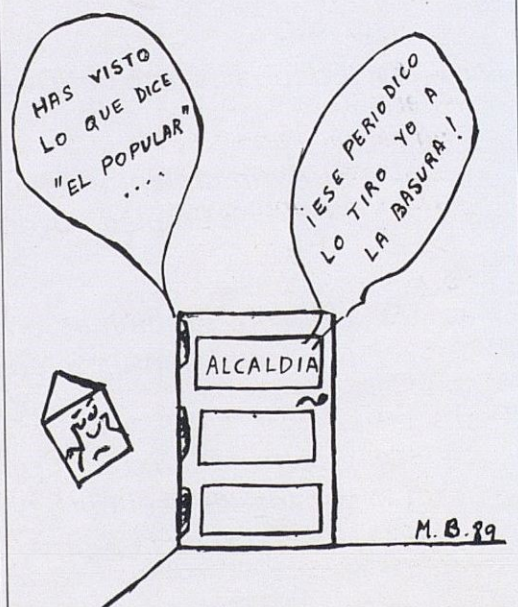 HAS VISTO
LO QUE DICE
"EL POPULAR"
....
¡ESE PERIODICO
LO TIRO YO A
LA BASURA!
ALCALDIA
M.B.89